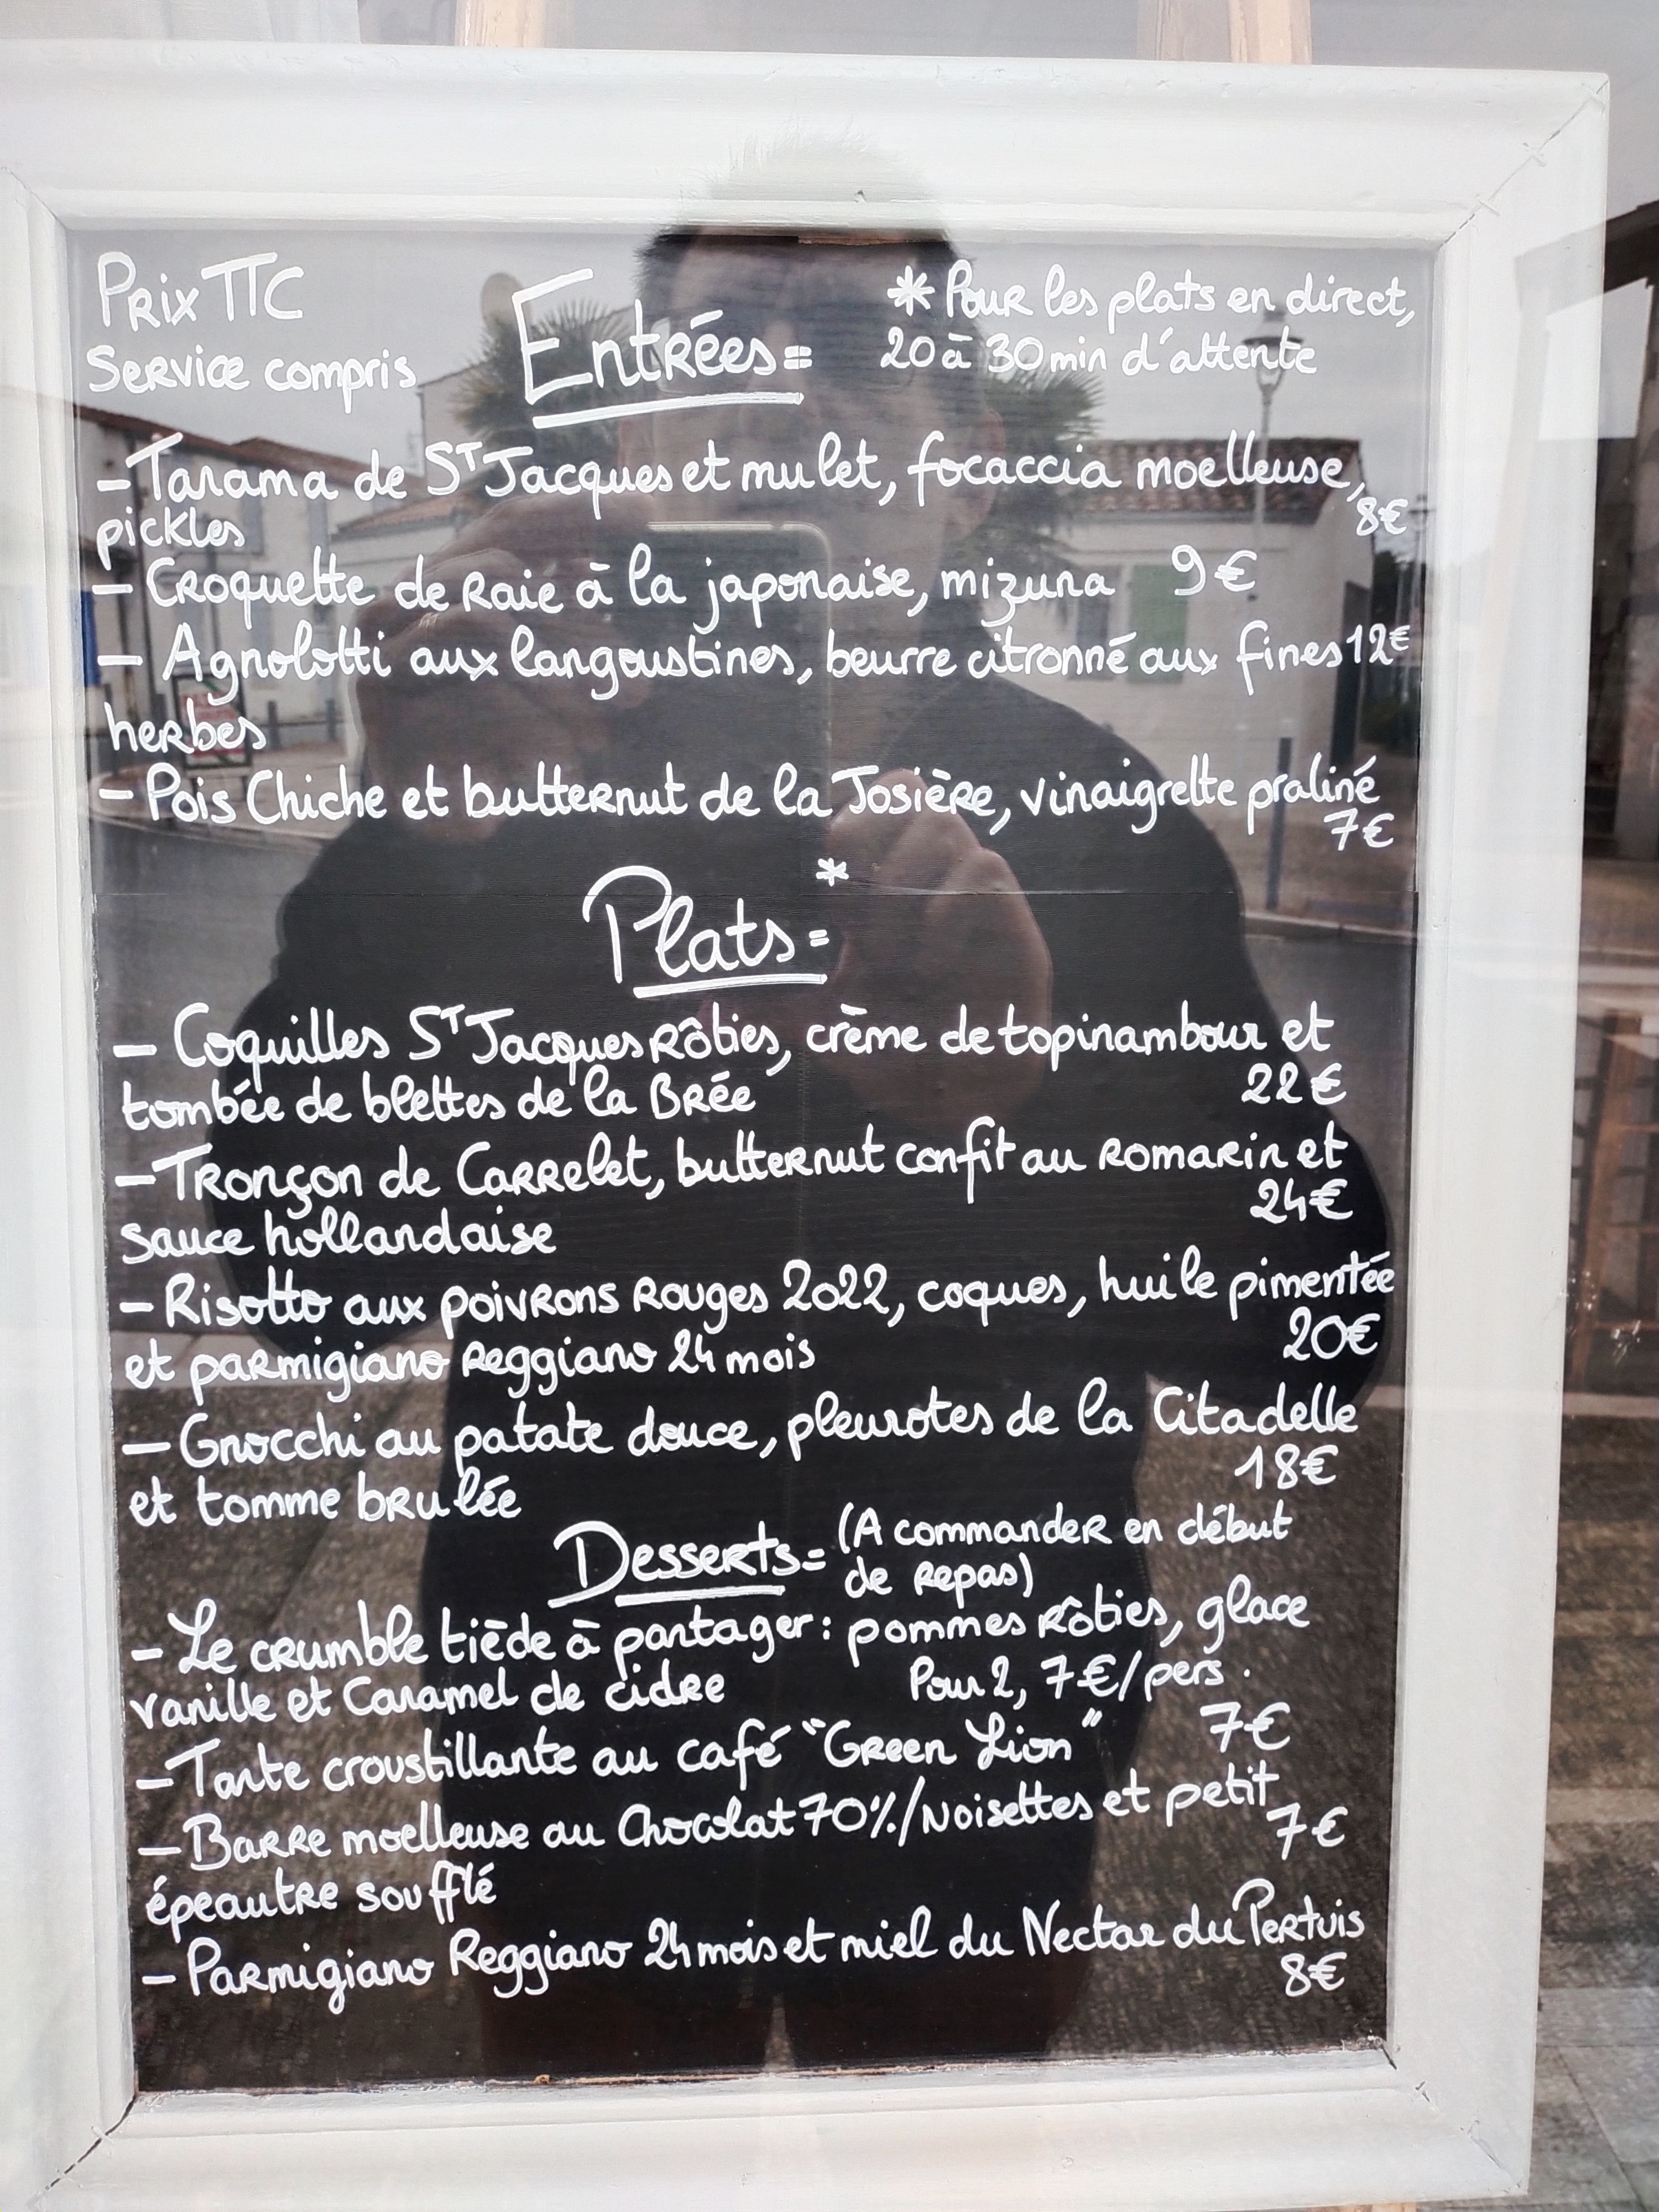 Prix TTC
Service compris
Entrées=
* Pour les plats en direct,
20 à 30 min d'attente
- Tarama de ST Jacques et mulet, focaccia moelleuse, 8€
pickles
- Croquette de Raie à la japonaise, mizuna 9€
- Agnolotti aux langoustines, beurre citronné aux fines 12€
herbes
- Pois Chiche et butternut de la Josière, vinaigrette praliné
7€
Plats= *
- Coquilles ST Jacques Rôties, crème de topinambour et
tombée de blettes de la Brée 22€
- Tronçon de Carrelet, butternut confit au romarin et
24€
sauce hollandaise
- Risotto aux poivrons rouges 2022, coques, huile pimentée
et parmigiano Reggiano 24 mois 20€
- Gnocchi au patate douce, pleurotes de la Citadelle
18€
et tomme brulée
Desserts= (A commander en début
de repas)
- Le crumble tiède à partager : pommes Rôties, glace
vanille et Caramel de cidre Pour 2, 7€/pers.
- Tarte croustillante au café "Green Lion" 7€
- Barre moelleuse au Chocolat 70%/Noisettes et petit
7€
épeautre soufflé
- Parmigiano Reggiano 24 mois et miel du Nectar du Pertuis
8€